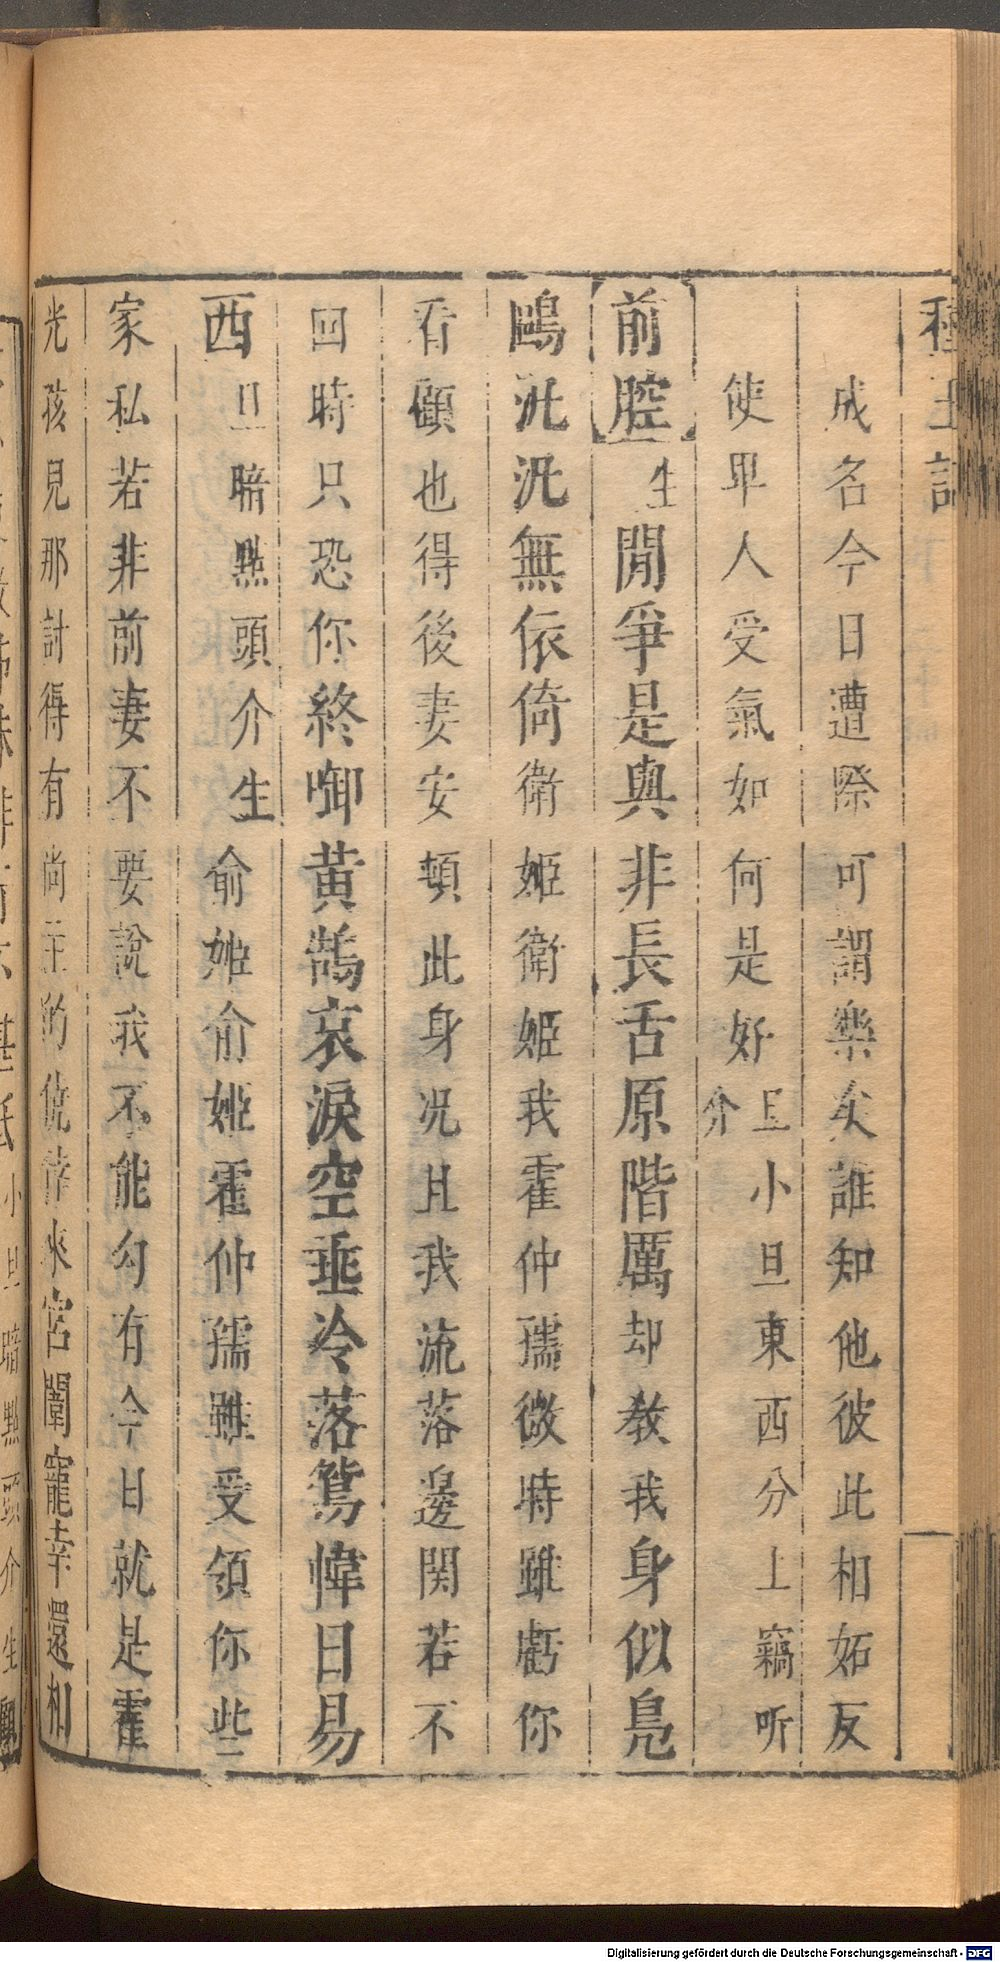 種玉記
成名今日遭際可謂樂矣誰知他彼此相妬反
使卑人受氣如何是好旦介小旦東西分上竊听
前腔 生 閒爭是與非長舌原階厲却教我身似鳧
鷗汎汎無依倚衛姬衛姬我霍仲孺微時雖虧你
看顧也得後妻安頓此身况且我流落邊関若不
回時只恐你終啣黃鵠哀淚空垂冷落鴛幃日易
西旦暗點頭介生俞姬俞姬霍仲孺雖受領你些
家私若非前妻不要說我不能勾有今日就是霍
光孩兒那討得有尚主的僥倖來宮闈寵幸還相
小旦暗點頭介生
Digitalisierung gefördert durch die Deutsche Forschungsgemeinschaft - DFG